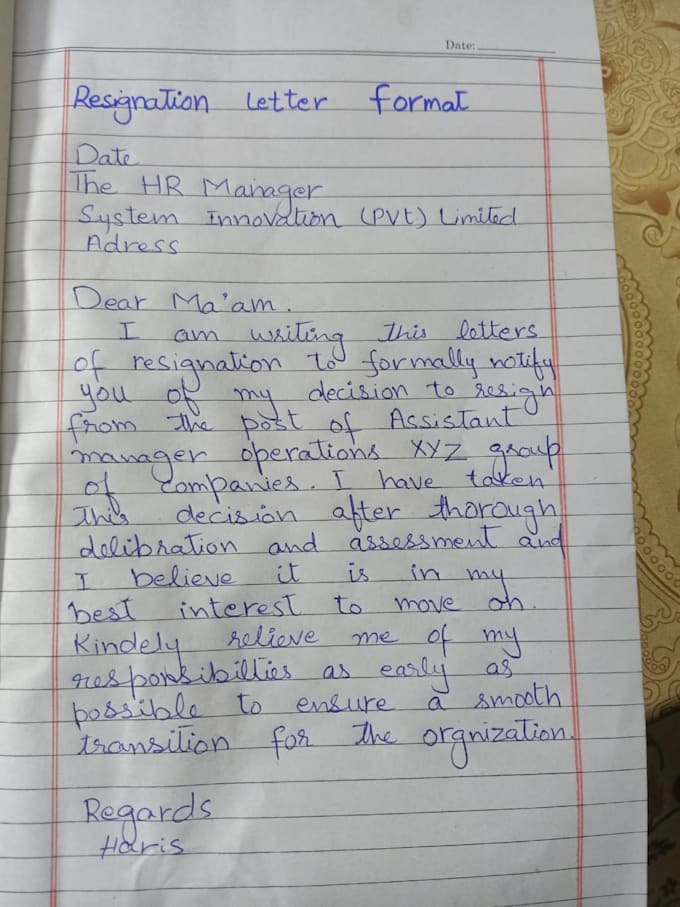 Date:
Resignation Letter format
Date
The HR Manager
System Innovation (Pvt) Limited
Adress
Dear Ma'am.
I am writing this letters
of resignation to formally notify
you of my decision to resign
from the post of Assistant
manager operations XYZ group
of Companies. I have taken
this decision after thorough
delibration and assessment and
I believe it is in my
best interest to move on.
Kindely relieve me of my
responsibilties as early as
possible to ensure a smooth
transition for the orgnization.
Regards
Haris